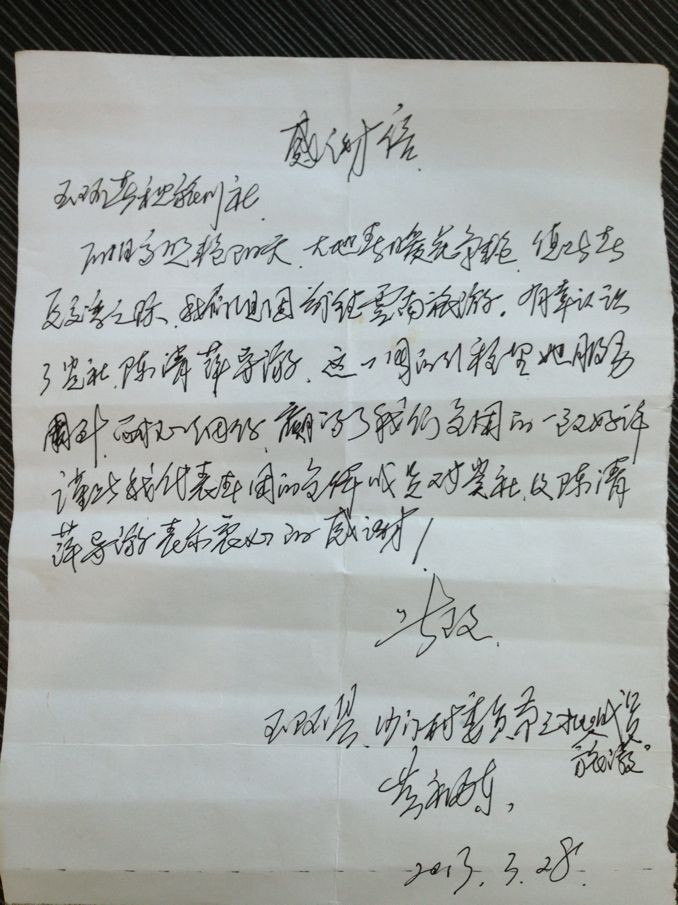 感谢信
玉环县 旅行社
阳 高照艳阳天、大地春暖花争艳、值此春
夏交季之际、我们组团前往雲南旅游。有幸认识
了贵社、陈清萍导游、这一周的行程里她服务
周到、耐心细仔、赢得了我们全团的一致好评
谨此我代表本团的全体成员对贵社及陈清
萍导游表示衷心的感谢！
此致
玉环县、沙门村委 第三 成员
旅游。
2013.3.28.